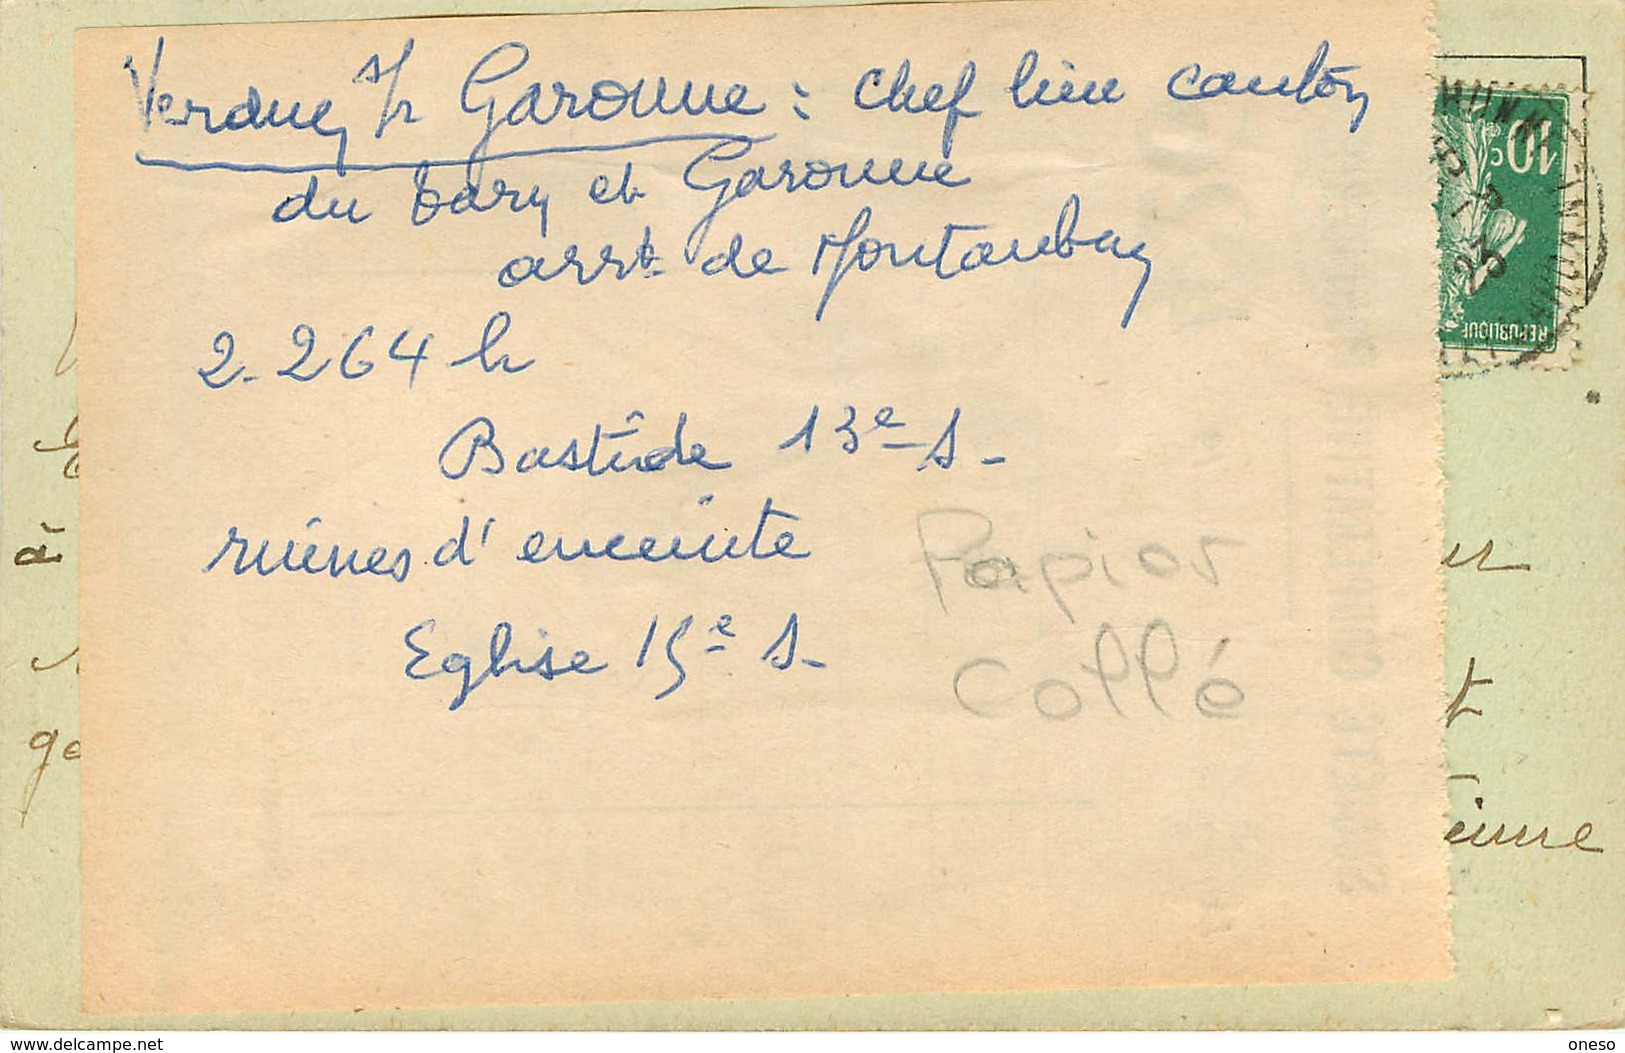 Verdun s/r Garonne : chef lieu canton
du tarn et Garonne
arrt de Montauban
2.264 h
Bastide 13e s.
ruines d'enceinte
Eglise 15e s.
Papier
collé
10c
REPUBLIQUE
à
delcampe.net
oneso